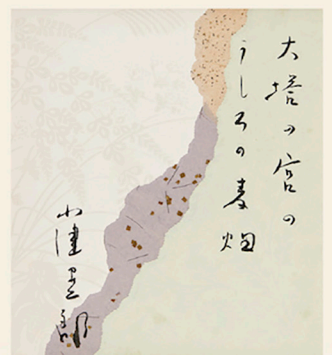 大塔の宮の
うしろの麦畑
小津安二郎